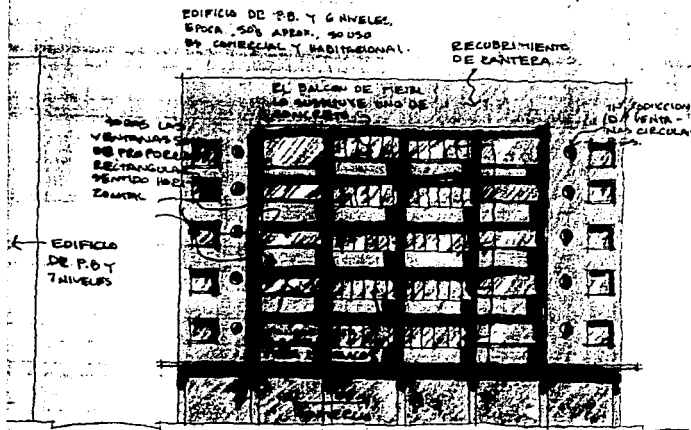 EDIFICIO DE P.B. Y 6 NIVELES,
EPOCA .50S APROX., SU USO
ES COMERCIAL Y HABITACIONAL.
RECUBRIMIENTO
DE CANTERA.
EL BALCON DE METAL
LO SUBSTITUYE UNO DE
CONCRETO
TODAS LAS
VENTANAS S
DE PROPORC
RECTANGULA
SENTIDO HOR
ZONTAL
DE VENTA-
NAS CIRCULA
EDIFICIO
DE P.B Y
7 NIVELES